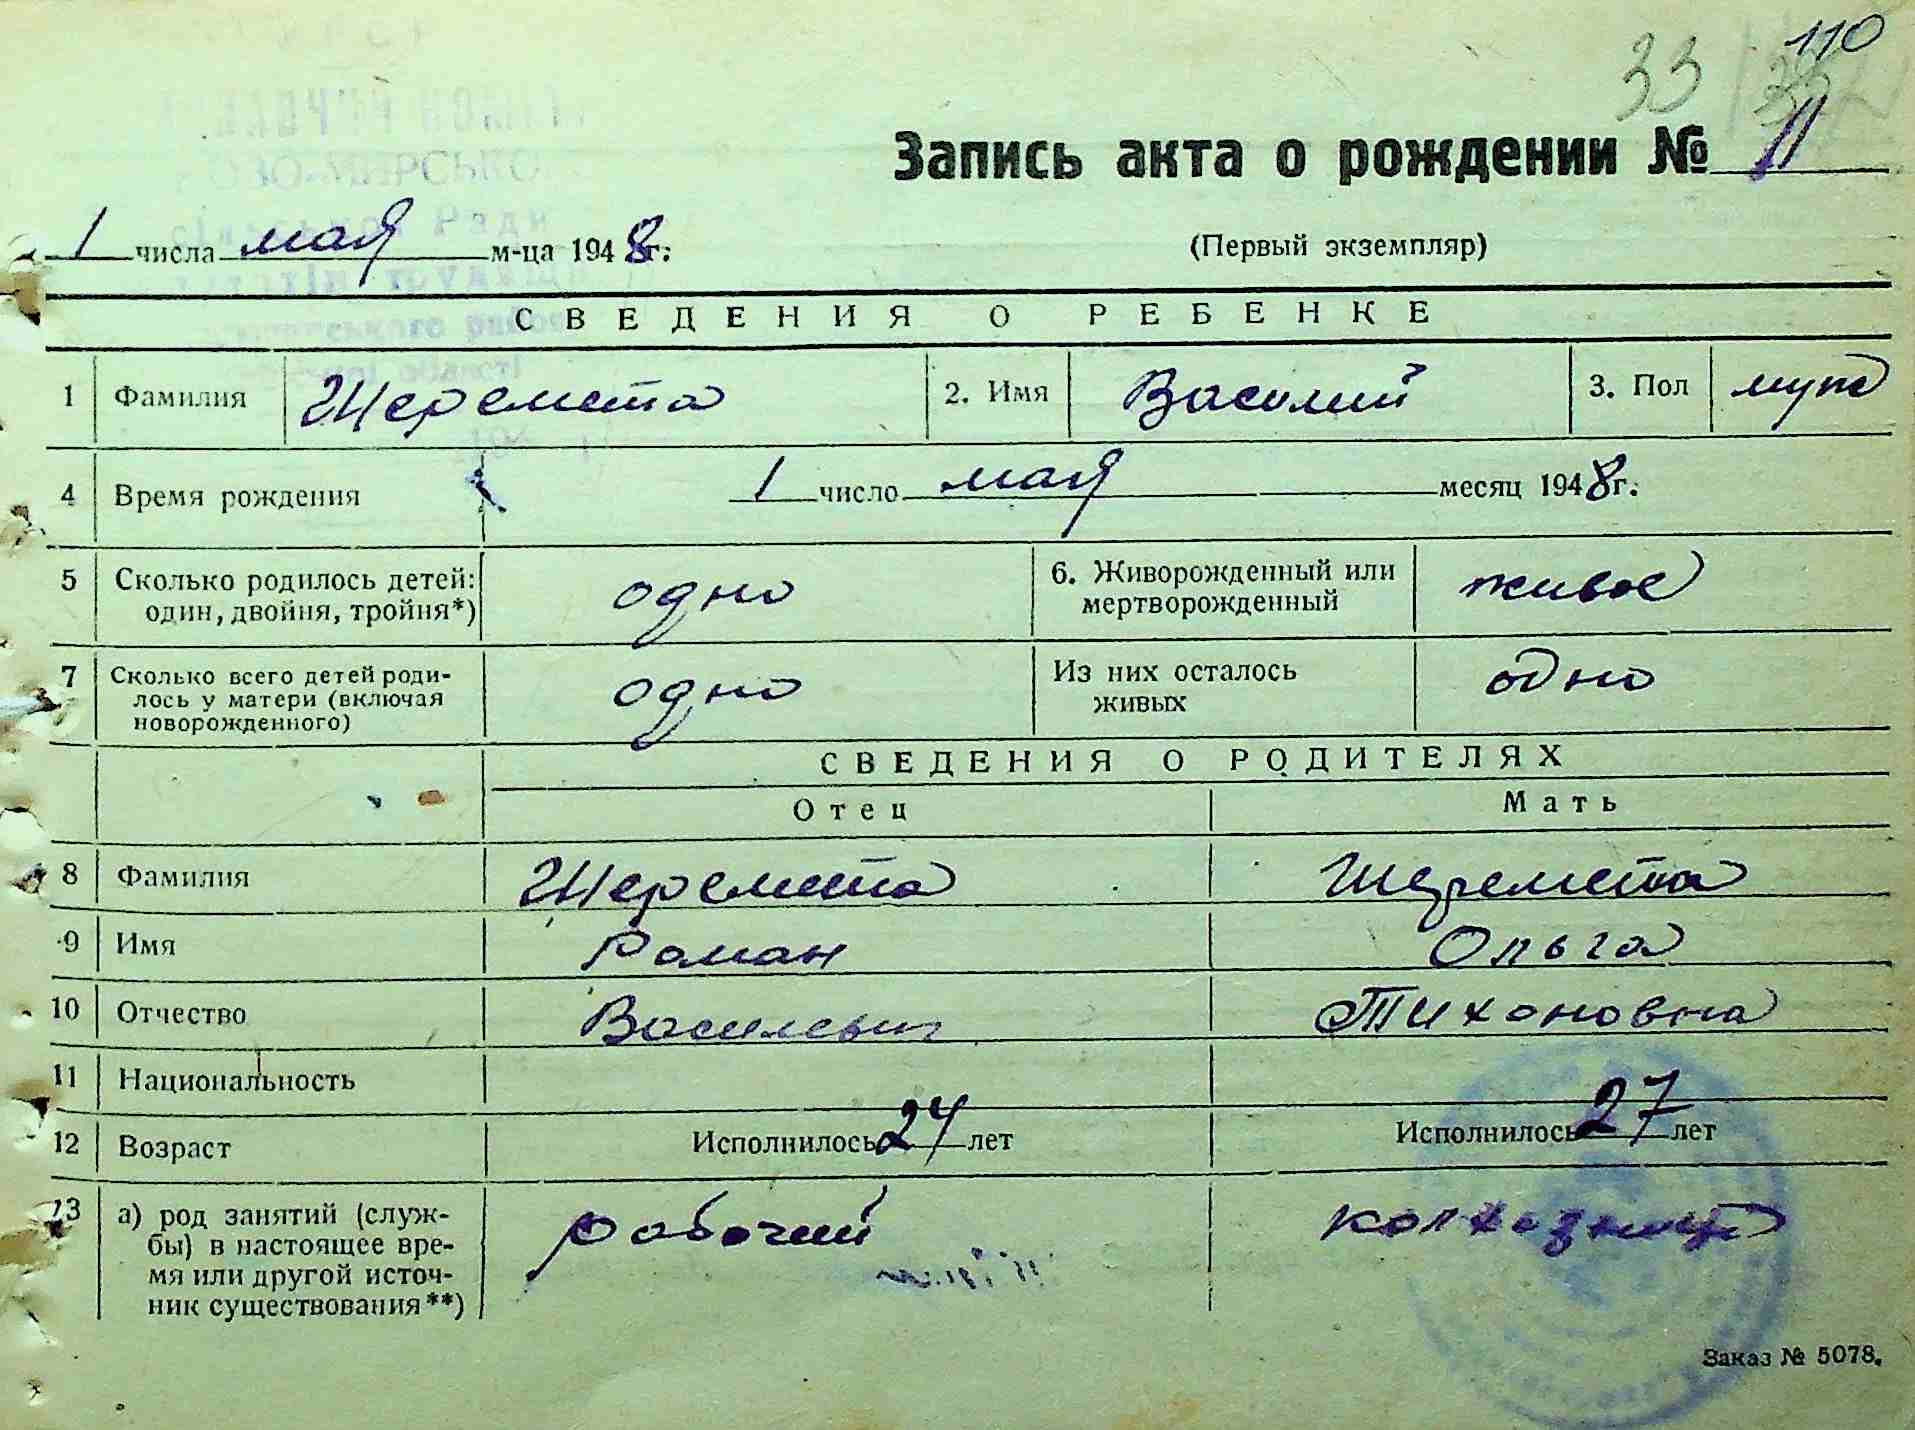 110
33
Запись акта о рождении № 11
1 числа мая м-ца 1948г.
(Первый экземпляр)
СВЕДЕНИЯ О РЕБЕНКЕ
1 Фамилия Шеремета 2. Имя Василий 3. Пол муж
4 Время рождения 1 число мая месяц 1948г.
5 Сколько родилось детей: один, двойня, тройня*) одно 6. Живорожденный или мертворожденный живое
7 Сколько всего детей роди-
лось у матери (включая
новорожденного) одно Из них осталось живых одно
СВЕДЕНИЯ О РОДИТЕЛЯХ
Отец Мать
8 Фамилия Шеремета Шеремета
9 Имя Роман Ольга
10 Отчество Васильевич Тихоновна
11 Национальность
12 Возраст Исполнилось 24 лет Исполнилось 27 лет
13 а) род занятий (служ-
бы) в настоящее вре-
мя или другой источ-
ник существования**) рабочий колхозниця
Заказ № 5078.